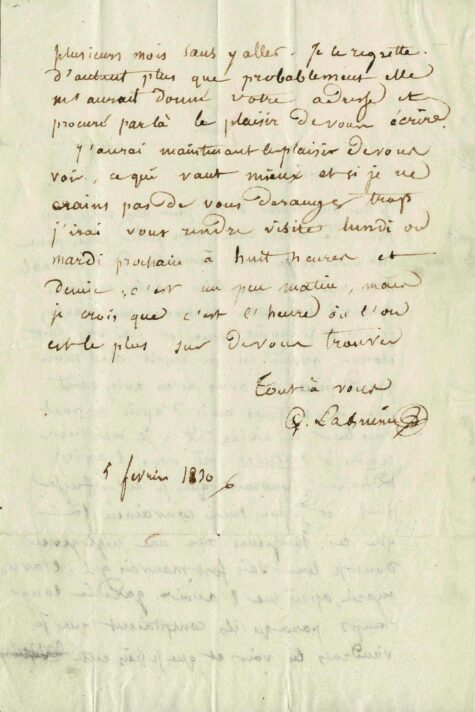 plusieurs mois sans y aller. Je le regrette.
d'autant plus que probablement elle
m'aurait donné votre adresse et
procuré par là le plaisir de vous écrire.
J'aurai maintenant le plaisir de vous
voir, ce qui vaut mieux et si je ne
crains pas de vous deranger trop
j'irai vous rendre visite lundi ou
mardi prochain à huit heures et
demie, c'est un peu matin, mais
je crois que c'est l'heure où l'on
est le plus sur de vous trouver
Tout à vous
5 fevrier 1830